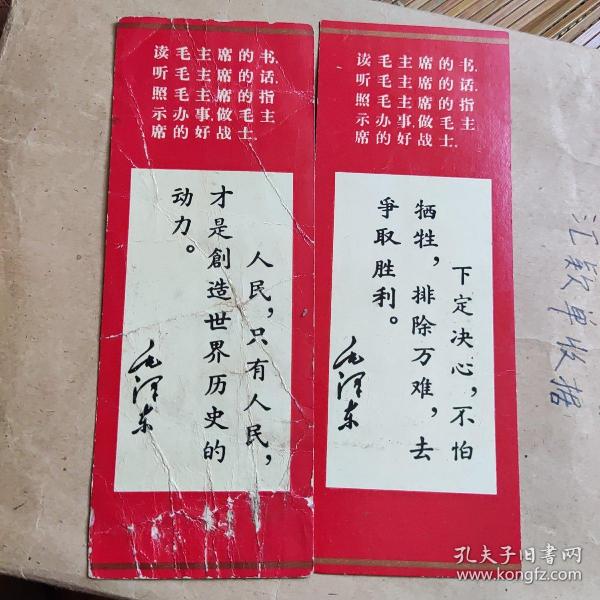 读毛主席的书,
听毛主席的话,
照毛主席的指
示办事,做毛主
席的好战士.
人民，只有人民，
才是創造世界历史的
动力。
毛泽东
读毛主席的书,
听毛主席的话,
照毛主席的指
示办事,做毛主
席的好战士.
下定决心，不怕
牺牲，排除万难，去
爭取胜利。
毛泽东
汇款单收据
孔夫子旧书网
www.kongfz.com